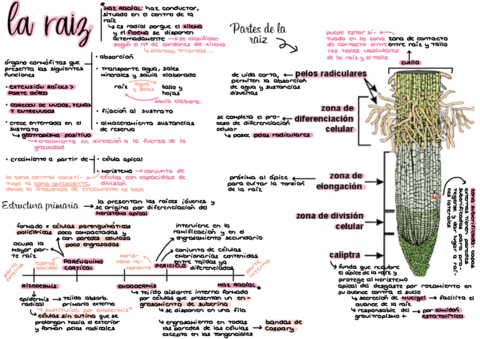 la raiz
Haz Radial: haz conductor,
situado en el centro de la
raíz
es radial porque el xilema
y el floema se disponen
alternadamente → se clasifican
según el nº de cordones del xilema
diarcas, triarcas...
órgano cormófitas que
presenta las siguientes
funciones
• absorción
• transporte agua, sales
minerales y savia elaborada
agua y sales
raíz
tallo y
hojas
savia elabora.
• fijación al sustrato
• almacenamiento sustancias
de reserva
• extensión raíces >
parte aérea
• carecen de nudos, yemas
y entrenudos
• crece enterrada en el
sustrato
↳ geotropismo positivo
↳ crecimiento en dirección a la fuerza de la
gravedad
• crecimiento a partir de
• célula apical
• meristemo → conjunto de
células con capacidad de
división
la zona central consti-
tuye la zona quiescente
donde la frecuencia de crecimiento es baja
Estructura primaria
la presentan las raíces jóvenes y
se origina por diferenciación del
meristemo apical
formado x células parenquimáticas
poliédricas poco compactadas y
con paredes celulares
poco engrosadas
ocupa la
mayor par-
te raíz
parénquima
cortical
interviene en la
ramificación y en el
engrosamiento secundario
conjunto de células
embrionarias contenidas
entre tejidos ya
diferenciados
periciclo
rizodermis
endodermis
haz radial
epidermis
radical
tejido absorb.
primario externo
sustituida por exodermis
células sin cutina que se
prolongan hacia el exterior y
forman pelos radicales
tejido aislante interno formado
por células que presentan un en-
grosamiento de suberina
se disponen en una fila
engrosamiento en todas
las paredes de las células
excepto en las tangenciales
bandas de
Caspary
Partes de la
raiz
puede estar si-
tuada en la zona
de contacto entre
los haces vasculares
zona de contacto
entre raíz y tallo
cuello
de vida corta,
permiten la absorción
de agua y sustancias
disueltas
pelos radiculares
zona de
diferenciación
celular
se completa el pro-
ceso de diferenciación
celular
↳ posee pelos radiculares
próxima al ápice
para evitar la torsión
de la raíz
zona de
elongación
zona de división
celular
caliptra
funda que recubre
el ápice de la raíz y
protege el meristemo
apical del desgaste por rozamiento en
su avance contra el suelo
↳ secreción de mucigel → facilita el
avance de la raíz
↳ responsable del
gravitropismo +
por almidón
estatolítico